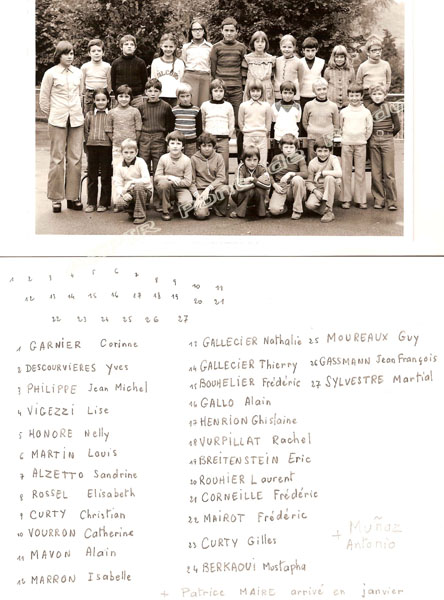 1 2 3 4 5 6 7 8 9 10 11
12 13 14 15 16 17 18 19 20 21
22 23 24 25 26 27
1 GARNIER Corinne
2 DESCOURVIERES Yves
3 PHILIPPE Jean Michel
4 VIGEZZI Lise
5 HONORE Nelly
6 MARTIN Louis
7 ALZETTO Sandrine
8 ROSSEL Elisabeth
9 CURTY Christian
10 VOURRON Catherine
11 MAVON Alain
12 MARRON Isabelle
13 GALLECIER Nathalie
14 GALLECIER Thierry
15 BOUHELIER Frédéric
16 GALLO Alain
17 HENRION Ghislaine
18 VURPILLAT Rachel
19 BREITENSTEIN Eric
20 ROUHIER Laurent
21 CORNEILLE Frédéric
22 MAIROT Frédéric
23 CURTY Gilles
24 BERKAOUI Mostapha
25 MOUREAUX Guy
26 GASSMANN Jean François
27 SYLVESTRE Martial
+ Muñoz
Antonio
+ Patrice MAIRE arrivé en janvier